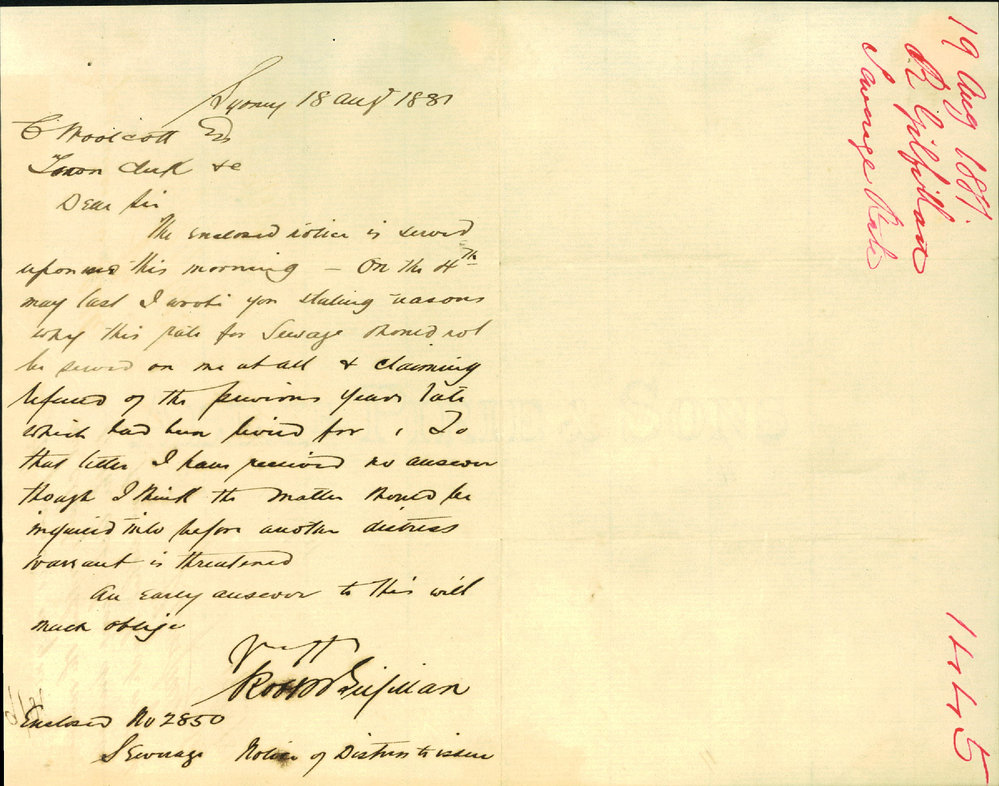 Sydney 18 Augt 1881
C Woolcott Esq
Town Clerk &c
Dear Sir
The enclosed notice is served
upon me this morning — On the 4th
May last I wrote you stating reasons
why this rate for Sewage should not
be served on me at all & claiming
refund of the previous years rate
which had been levied for, To
that letter I have received no answer
though I think the matter should be
inquired into before another distress
warrant is threatened
An early answer to this will
much oblige
Robt Gilfillan
Enclosed No 2850
Sewerage Notice of Distress to issue
19 Aug 1881.
R Gilfillan
Sewerage Rate
1445